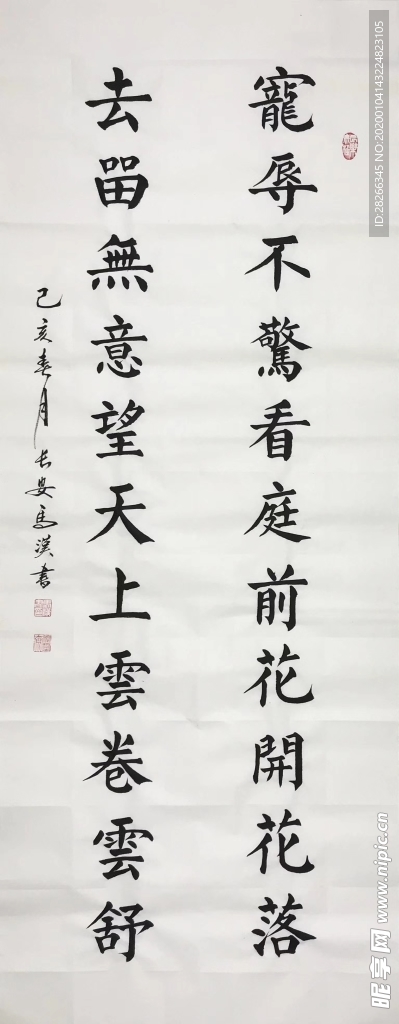 寵辱不驚看庭前花開花落
去畱無意望天上雲卷雲舒
己亥春月长安马漢書
ID:28266345 NO:20200104143224823105
昵享网 www.nipic.cn